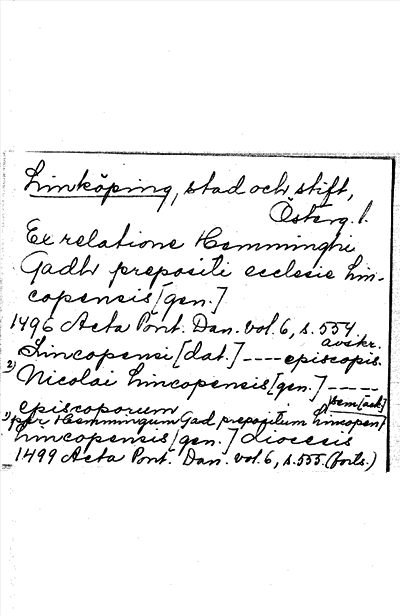 Linköping, stad och stift,
Österg. l.
Ex relatione Hemminghi
Gadh prepositi ecclesie Lin-
copensis [gen.]
1496 Acta Pont. Dan. vol. 6, s. 554
avskr.
Lincopensi [dat.] ---- episcopis.
2) Nicolai Lincopensis [gen.] -----
episcoporum
1) per Hemmingum Gad prepositum Lincopen
sem [ack]
Lincopensis [gen.] diocesis
1499 Acta Pont. Dan. vol. 6, s. 555. (forts.)